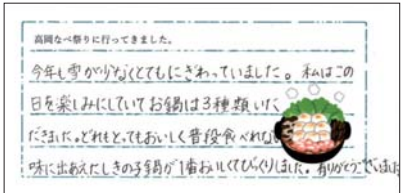 高岡なべ祭りに行ってきました。
今年も雪が少なくとてもにぎわっていました。私はこの
日を楽しみにしていてお鍋は3種類いた
だきました。どれもとってもおいしく普段食べれない
味に出あえたしきの子鍋が1番おいしくてびっくりしました。有りがとうございました